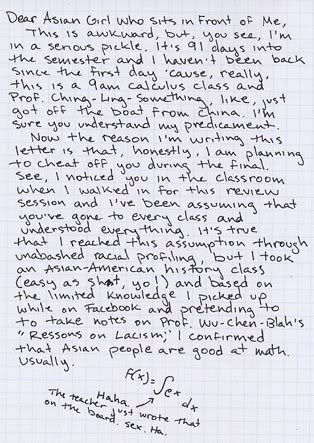 Dear Asian Girl Who Sits in Front of Me,
This is awkward, but, you see, I'm
in a serious pickle. It's 91 days into
the semester and I haven't been back
since the first day 'cause, really,
this is a 9am calculus class and
Prof. Ching-Ling-Something, like, just
got off the boat from China. I'm
sure you understand my predicament.
Now the reason I'm writing this
letter is that, honestly, I am planning
to cheat off you during the final.
See, I noticed you in the classroom
when I walked in for this review
session and I've been assuming that
you've gone to every class and
understood everything. It's true
that I reached this assumption through
unabashed racial profiling, but I took
an Asian-American history class
(easy as sh*t, yo!) and based on
the limited knowledge I picked up
while on Facebook and pretending to
to take notes on Prof. Wu-Chen-Blah's
"Ressons on Lacism," I confirmed
that Asian people are good at math.
Usually.
F(x)=∫ex dx
Haha.
The teacher just wrote that
on the board. sex. Ha.